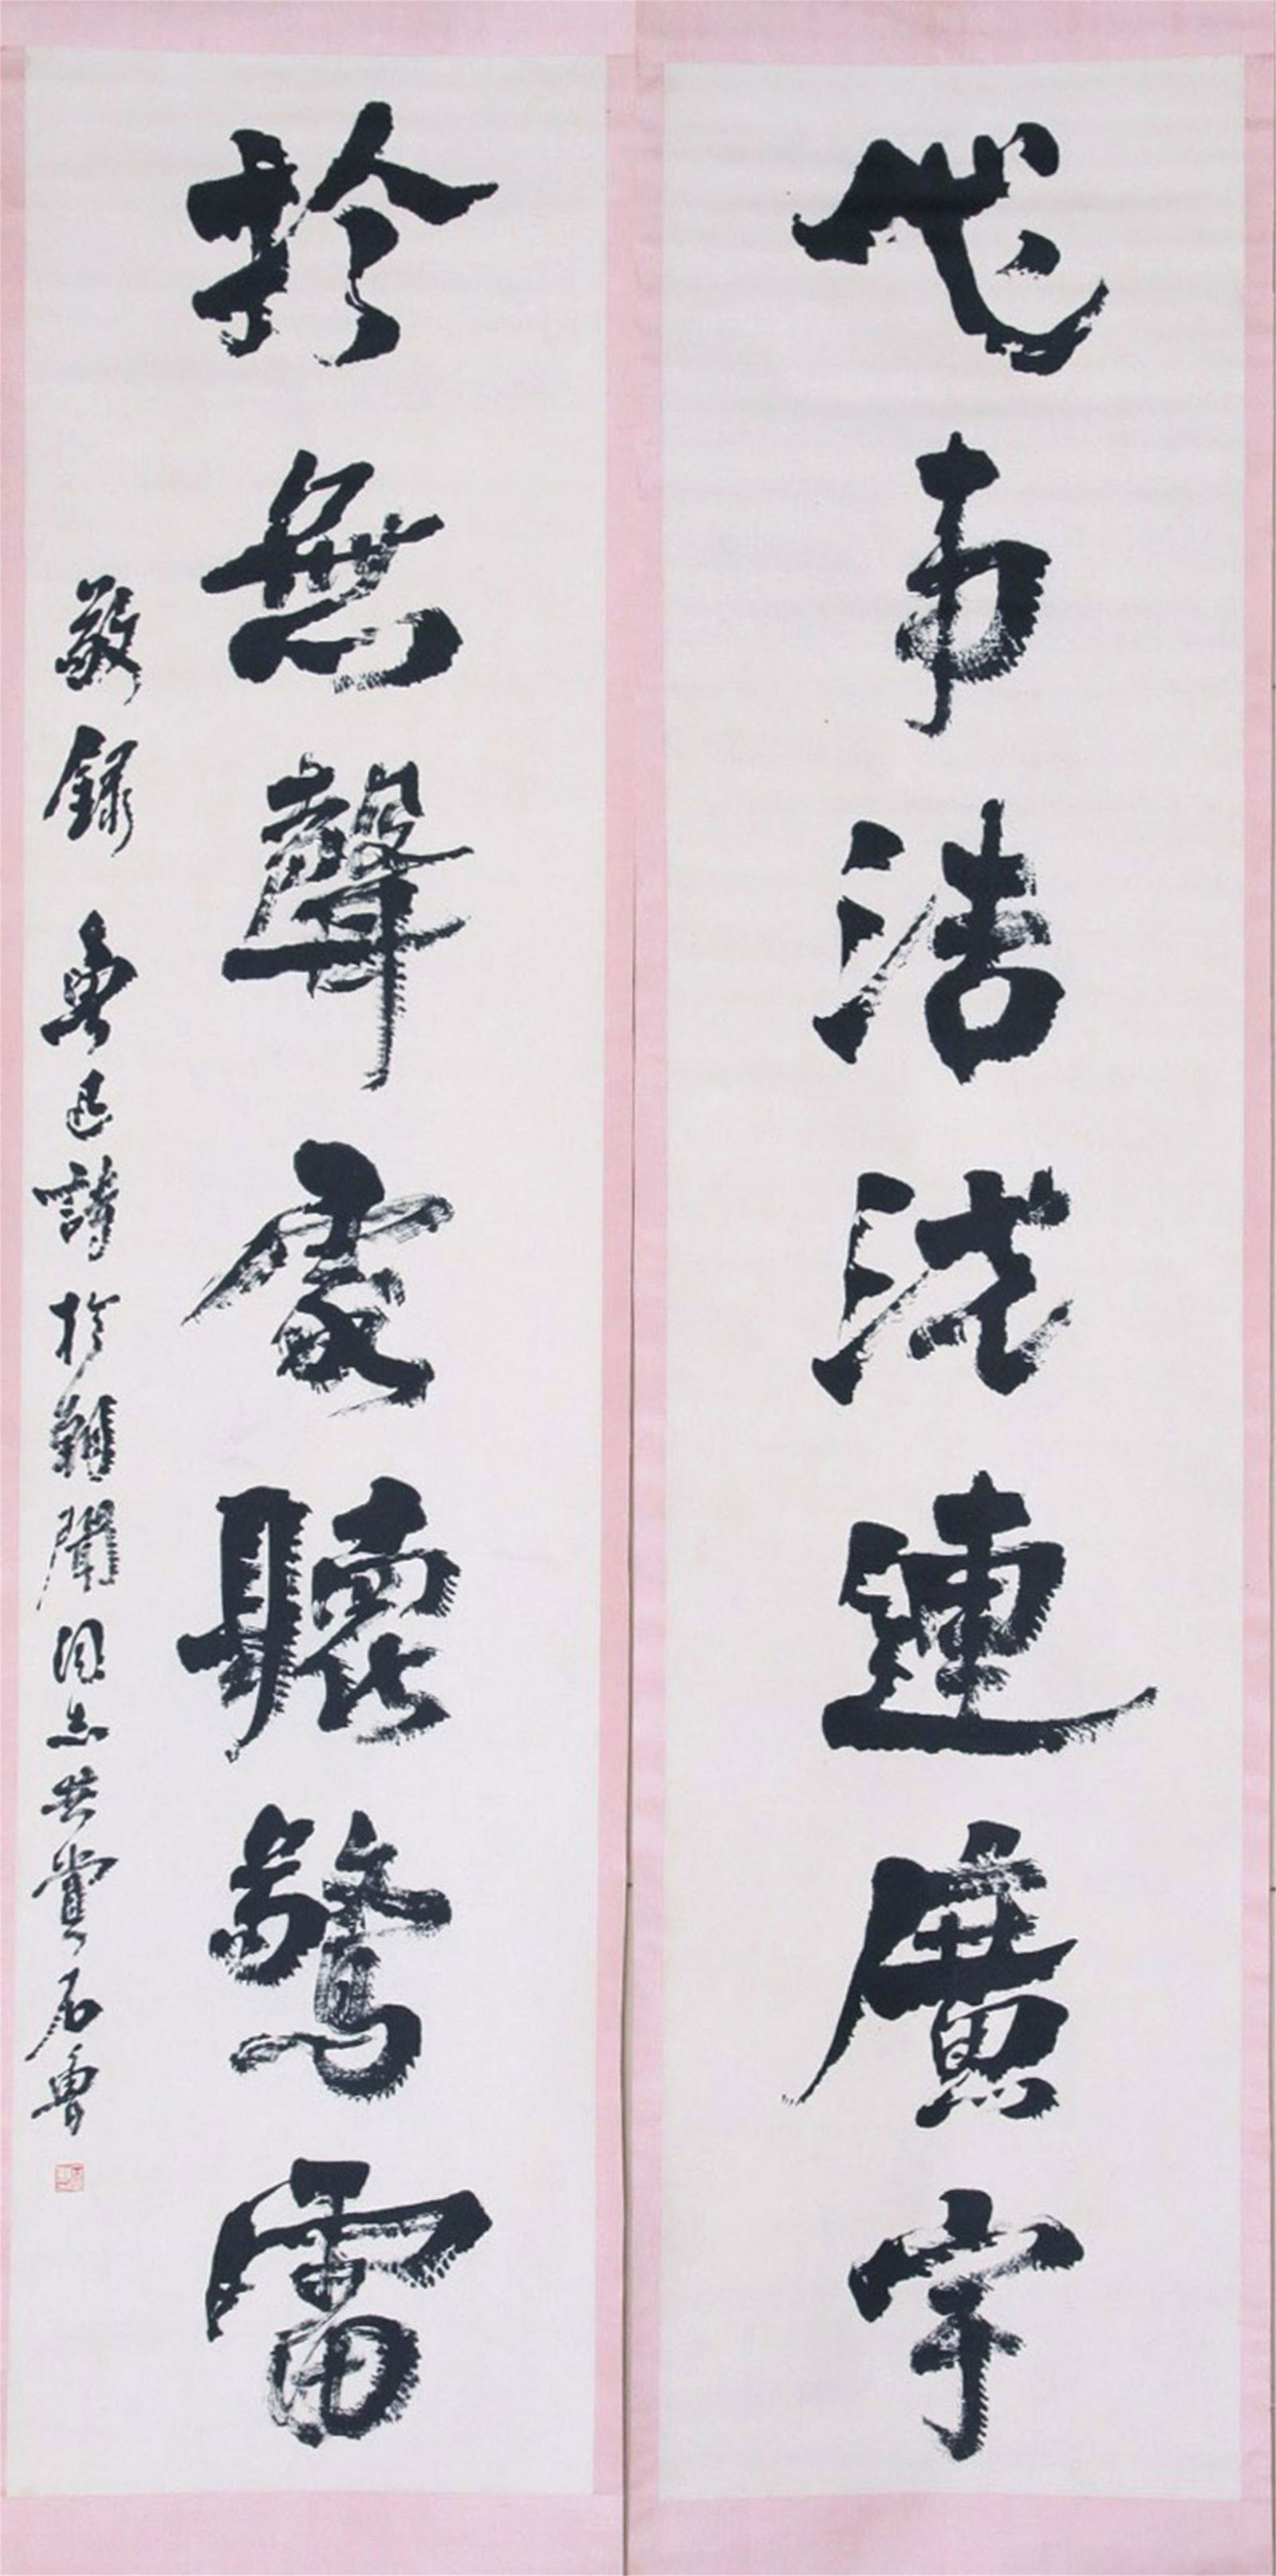 心事浩茫連廣宇
於無聲處聽驚雷
敬錄 魯迅詩於朝聞同志共賞石魯